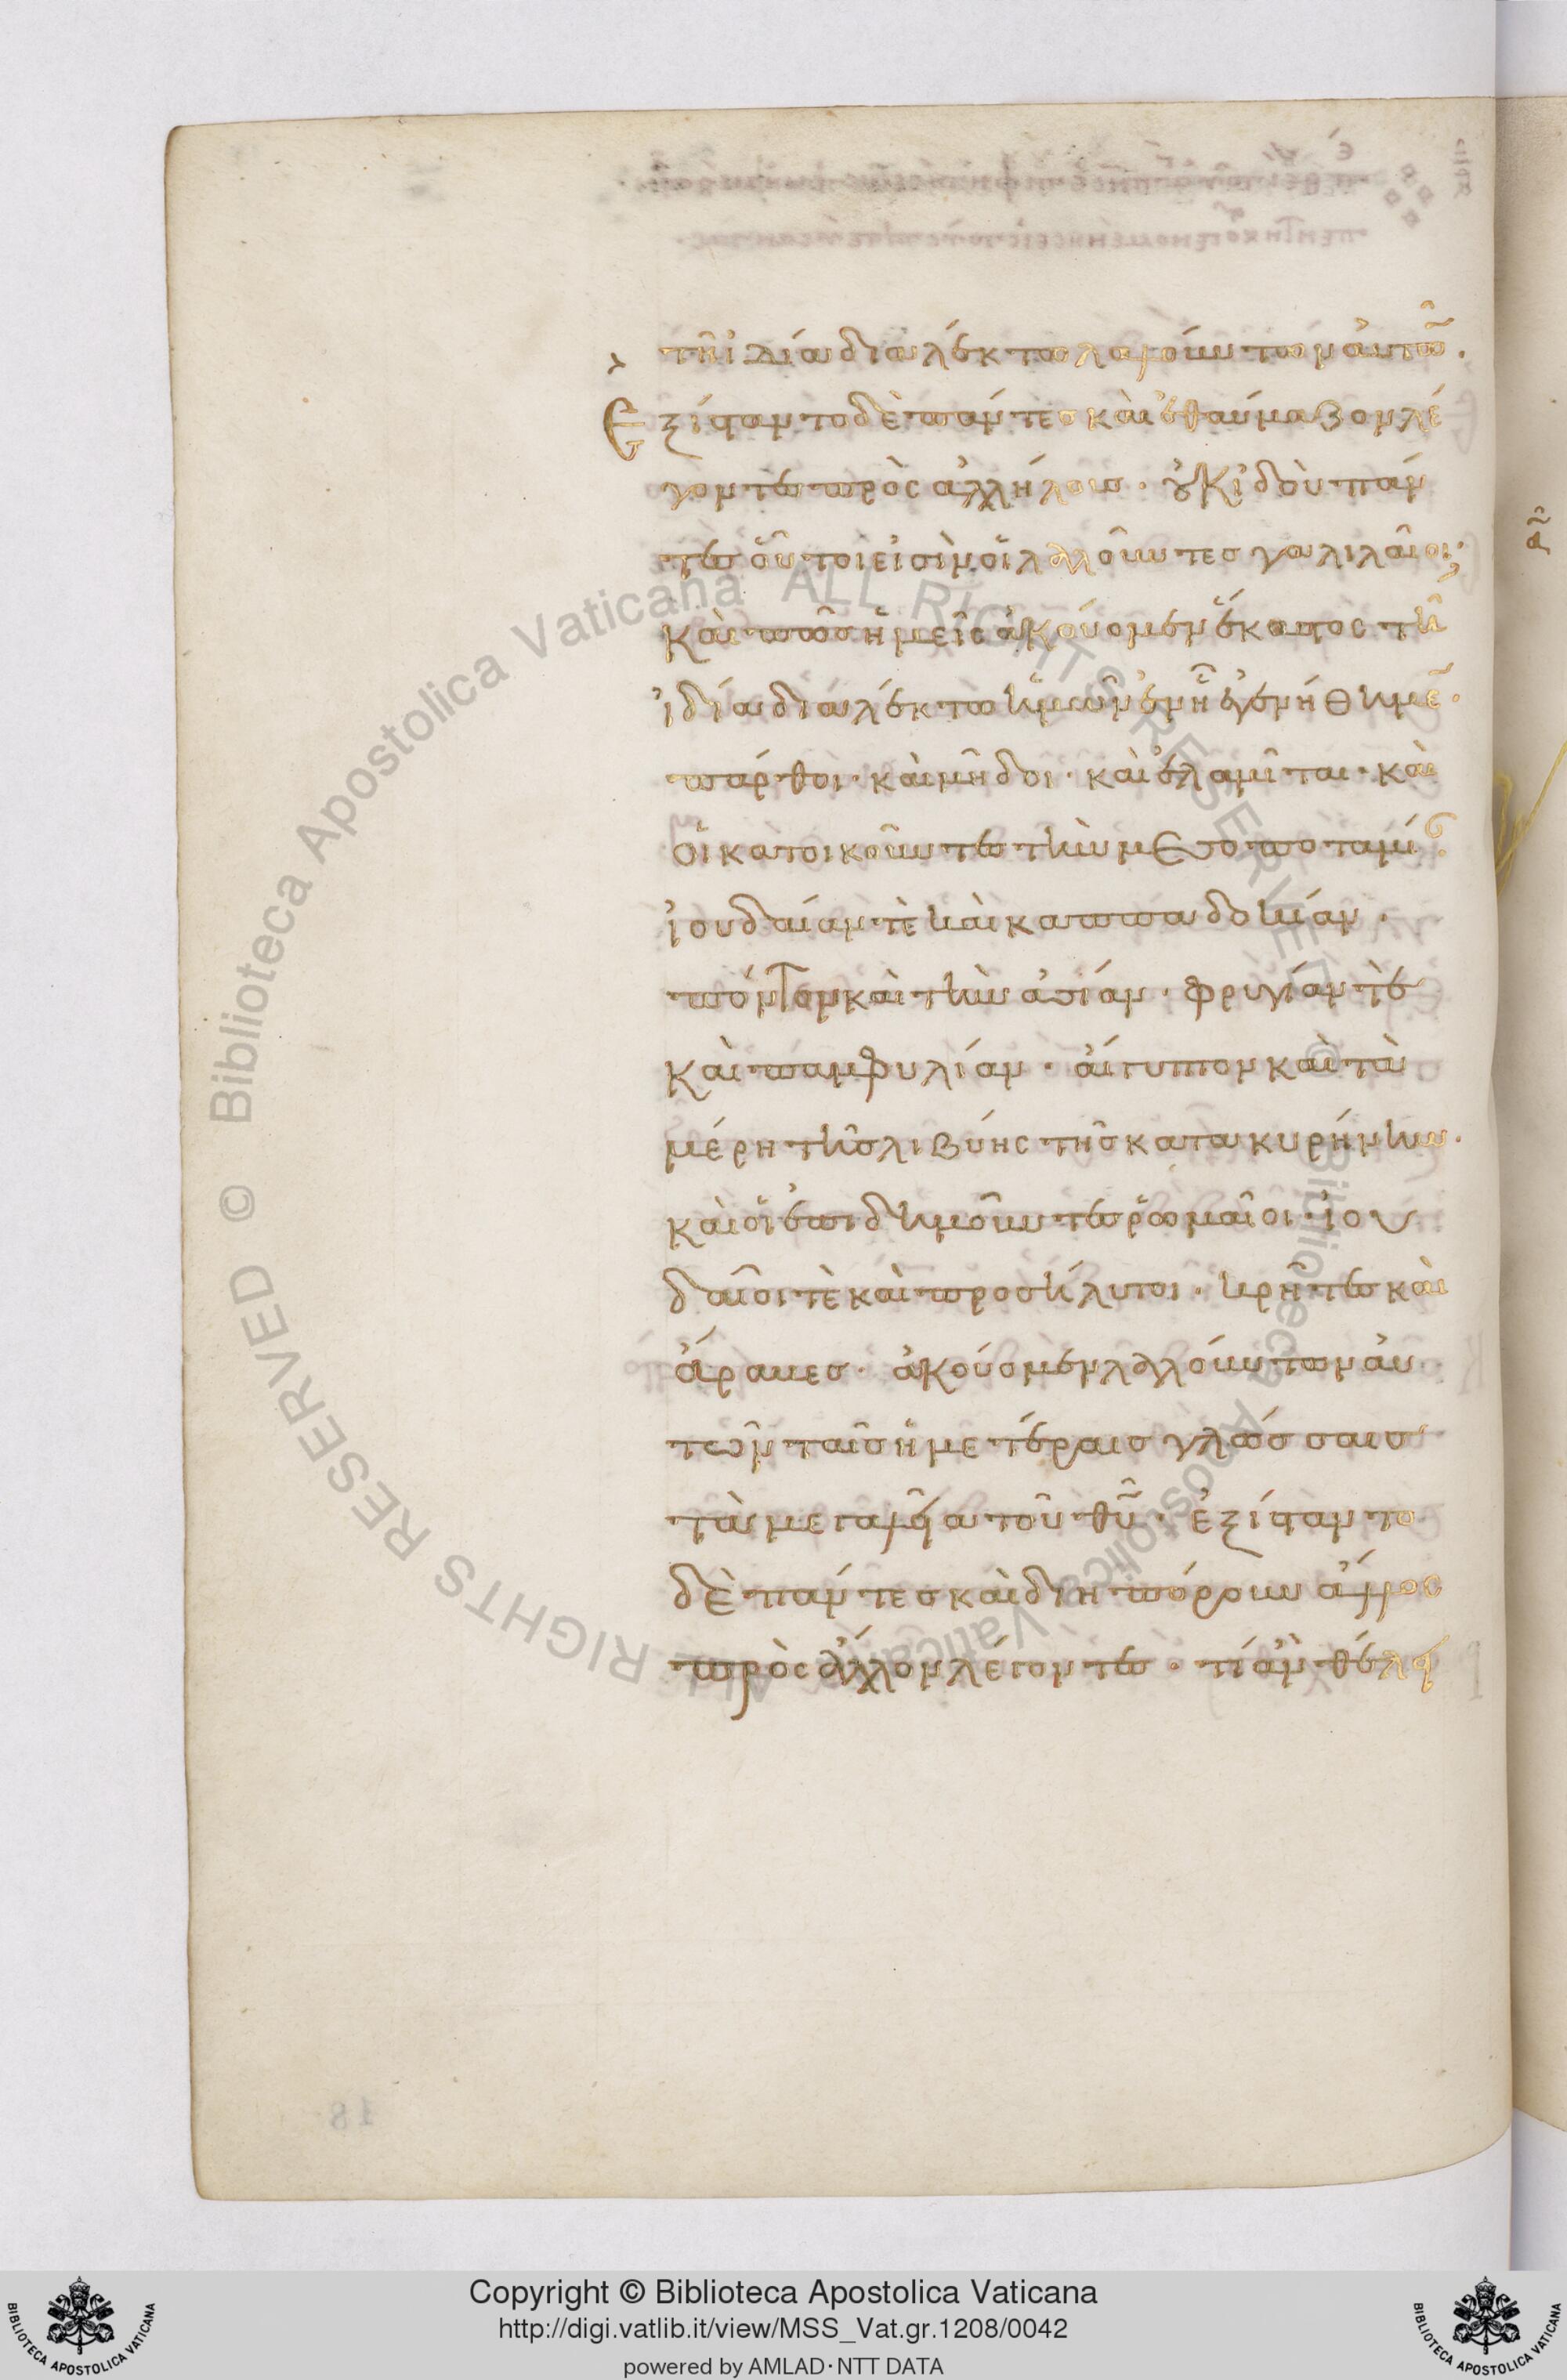 τῆ ἰδία διαλέκτω λαλούντων αὐτῶ̅.
Ἐξίσταντο δὲ πάντες καὶ ἐθαύμαζον λέ
γοντες πρὸς ἀλλήλους · οὐκ ἰδοὺ πάν
τες οὗτοι εἰσὶν οἱ λαλοῦντες γαλιλαῖοι;
καὶ πῶς ἡμεῖς ἀκούομεν ἕκαστος τῆ
ἰδία διαλέκτω ἡμῶν ἐν ἧ ἐγεννήθημε̅ ·
πάρθοι · καὶ μῆδοι · καὶ ἐλαμῖται · καὶ
οἱ κατοικοῦντες τὴν μεσοποταμί
ἰουδαίαν τὲ καὶ καππαδοκίαν ·
πόντον καὶ τὴν ἀσίαν · φρυγίαν τὲ
καὶ παμφυλίαν · αἴγυπτον καὶ τὰ
μέρη τῆς λιβύης τῆς κατα κυρήνην ·
καὶ οἱ ἐπιδημοῦντες ῥωμαῖοι · ἰου
δαῖοι τὲ καὶ προσήλυτοι · κρῆτες καὶ
ἄραβες · ἀκούομεν λαλούντων αὐ
τῶν ταῖς ἡμετέραις γλώσσαις
τὰ μεγαλεῖα τοῦ θῦ · ἐξίσταντο
δὲ πάντες καὶ διηπόρουν ἄλλος
πρὸς ἄλλον λέγοντες · τί ἂν θέλει
Copyright © Biblioteca Apostolica Vaticana
http://digi.vatlib.it/view/MSS_Vat.gr.1208/0042
powered by AMLAD·NTT DATA